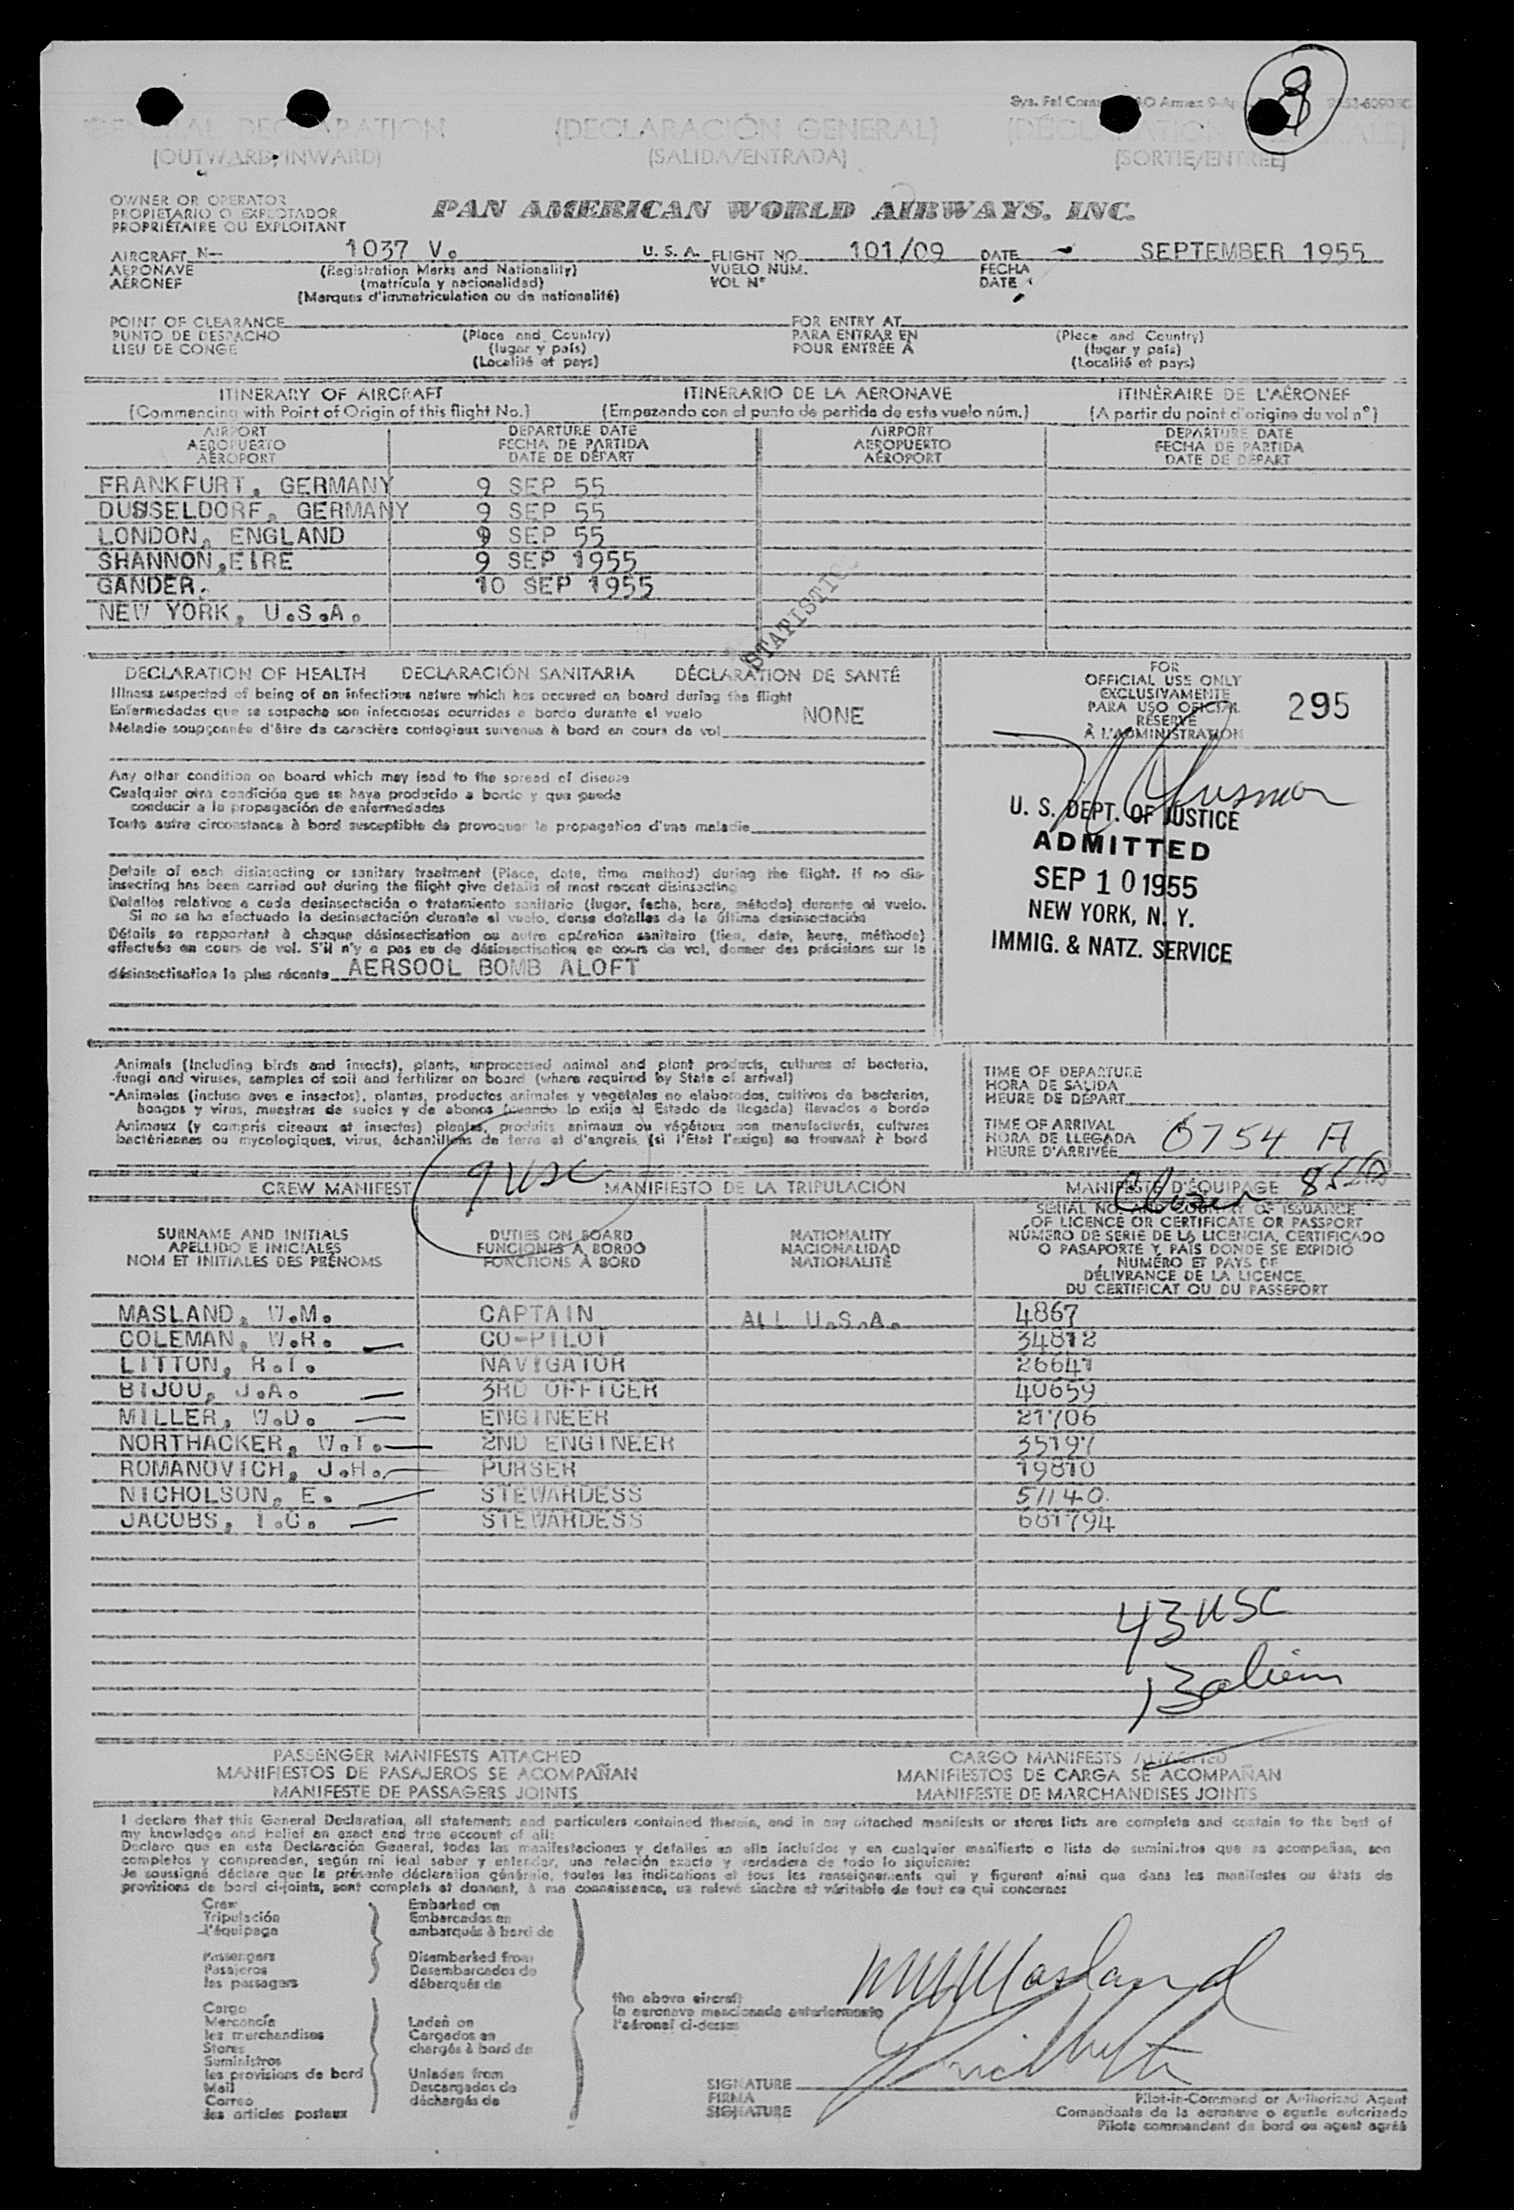 8
Sys. Fel Cons
(DECLARACIÓN GENERAL)
[OUTWARD/INWARD] (SALIDA/ENTRADA) [SORTIE/ENTRÉE]
OWNER OR OPERATOR
PROPIETARIO O EXPLOTADOR
PROPRIÉTAIRE OU EXPLOITANT
PAN AMERICAN WORLD AIRWAYS, INC.
AIRCRAFT N- 1037 V. U. S. A. FLIGHT NO. 101/09 DATE SEPTEMBER 1955
AERONAVE (Registration Marks and Nationality) VUELO NÚM. FECHA
AÉRONEF (matrícula y nacionalidad) VOL Nº DATE
(Marques d'immatriculation ou de nationalité)
POINT OF CLEARANCE FOR ENTRY AT
PUNTO DE DESPACHO (Place and Country) PARA ENTRAR EN (Place and Country)
LIEU DE CONGE (lugar y país) POUR ENTRÉE À (lugar y país)
(Localité et pays) (Localité et pays)
ITINERARY OF AIRCRAFT ITINERARIO DE LA AERONAVE ITINÉRAIRE DE L'AÉRONEF
(Commencing with Point of Origin of this flight No.) (Empezando con el punto de partida de este vuelo núm.) (A partir du point d'origine du vol nº)
AIRPORT DEPARTURE DATE AIRPORT DEPARTURE DATE
AEROPUERTO FECHA DE PARTIDA AEROPUERTO FECHA DE PARTIDA
AÉROPORT DATE DE DÉPART AÉROPORT DATE DE DÉPART
FRANKFURT, GERMANY 9 SEP 55
DUSSELDORF, GERMANY 9 SEP 55
LONDON, ENGLAND 9 SEP 55
SHANNON,EIRE 9 SEP 1955
GANDER. 10 SEP 1955
NEW YORK, U.S.A.
STATISTIC
DECLARATION OF HEALTH DECLARACIÓN SANITARIA DÉCLARATION DE SANTÉ
Illness suspected of being of an infectious nature which has occured on board during the flight
Enfermedades que se sospecha son infecciosas ocurridas a bordo durante el vuelo NONE
Maladie soupçonnée d'être de caractère contagieux survenue à bord en cours de vol
Any other condition on board which may lead to the spread of disease
Cualquier otra condición que se haya producido a bordo y que puede
conducir a la propagación de enfermedades
Toute autre circonstance à bord susceptible de provoquer la propagation d'une maladie
Details of each disinsecting or sanitary treatment (Place, date, time method) during the flight. If no dis-
insecting has been carried out during the flight give details of most recent disinsecting
Detalles relativos a cada desinsectación o tratamiento sanitario (lugar, fecha, hora, método) durante el vuelo.
Si no se ha efectuado la desinsectación durante el vuelo, dense detalles de la última desinsectación
Détails se rapportant à chaque désinsectisation ou autre opération sanitaire (lieu, date, heure, méthode)
effectuée en cours de vol. S'il n'y a pas eu de désinsectisation en cours de vol, donner des précisions sur la
désinsectisation la plus récente AERSOOL BOMB ALOFT
FOR
OFFICIAL USE ONLY
EXCLUSIVAMENTE
PARA USO OFICIAL
RÉSERVÉ
À L'ADMINISTRATION
295
U. S. DEPT. OF JUSTICE
ADMITTED
SEP 10 1955
NEW YORK, N. Y.
IMMIG. & NATZ. SERVICE
Animals (Including birds and insects), plants, unprocessed animal and plant products, cultures of bacteria,
fungi and viruses, samples of soil and fertilizer on board (where required by State of arrival)
Animales (incluso aves e insectos), plantas, productos animales y vegetales no elaborados, cultivos de bacterias,
hongos y virus, muestras de suelos y de abonos (cuando lo exija el Estado de llegada) llevados a bordo
Animaux (y compris oiseaux et insectes) plantes, produits animaux ou végétaux non manufacturés, cultures
bactériennes ou mycologiques, virus, échantillons de terre et d'engrais (si l'Etat l'exige) se trouvant à bord
TIME OF DEPARTURE
HORA DE SALIDA
HEURE DE DÉPART
TIME OF ARRIVAL
HORA DE LLEGADA 0754 A
HEURE D'ARRIVÉE
9 USC
CREW MANIFEST MANIFIESTO DE LA TRIPULACIÓN MANIFESTE D'ÉQUIPAGE
SURNAME AND INITIALS
APELLIDO E INICIALES
NOM ET INITIALES DES PRÉNOMS
DUTIES ON BOARD
FUNCIONES A BORDO
FONCTIONS À BORD
NATIONALITY
NACIONALIDAD
NATIONALITÉ
SERIAL NO. AND COUNTRY OF ISSUANCE
OF LICENCE OR CERTIFICATE OR PASSPORT
NÚMERO DE SERIE DE LA LICENCIA, CERTIFICADO
O PASAPORTE Y PAÍS DONDE SE EXPIDIÓ
NUMÉRO ET PAYS DE
DÉLIVRANCE DE LA LICENCE,
DU CERTIFICAT OU DU PASSEPORT
MASLAND, W.M. CAPTAIN ALL U.S.A. 4867
COLEMAN, W.R. CO-PILOT 34812
LITTON, R.T. NAVIGATOR 26641
BIJOU, J.A. 3RD OFFICER 40659
MILLER, W.D. ENGINEER 21706
NORTHACKER, W.T. 2ND ENGINEER 35197
ROMANOVICH, J.H. PURSER 19810
NICHOLSON, E. STEWARDESS 51140
JACOBS, I.C. STEWARDESS 661794
43 USC
13 alien
PASSENGER MANIFESTS ATTACHED CARGO MANIFESTS ATTACHED
MANIFIESTOS DE PASAJEROS SE ACOMPAÑAN MANIFIESTOS DE CARGA SE ACOMPAÑAN
MANIFESTE DE PASSAGERS JOINTS MANIFESTE DE MARCHANDISES JOINTS
I declare that this General Declaration, all statements and particulars contained therein, and in any attached manifests or stores lists are complete and contain to the best of
my knowledge and belief an exact and true account of all:
Declaro que en esta Declaración General, todas las manifestaciones y detalles en ella incluidos y en cualquier manifiesto o lista de suministros que se acompañan, son
completos y comprenden, según mi leal saber y entender, una relación exacta y verdadera de todo lo siguiente:
Je soussigné déclare que la présente déclaration générale, toutes les indications et tous les renseignements qui y figurent ainsi que dans les manifestes ou états de
provisions de bord ci-joints, sont complets et donnent, à ma connaissance, un relevé sincère et véritable de tout ce qui concerne:
Crew Embarked on
Tripulación Embarcados en
l'équipage embarqués à bord de
Passengers Disembarked from
Pasajeros Desembarcados de
les passagers débarqués de
Cargo
Mercancía
les marchandises
Stores
Suministros
les provisions de bord
Mail
Correo
les articles postaux
Laden on
Cargados en
chargés à bord de
Unladen from
Descargados de
déchargés de
the above aircraft
la aeronave mencionada anteriormente
l'aéronef ci-dessus
WM Masland
SIGNATURE
FIRMA
SIGNATURE
Pilot-in-Command or Authorized Agent
Comandante de la aeronave o agente autorizado
Pilote commandant de bord ou agent agréé